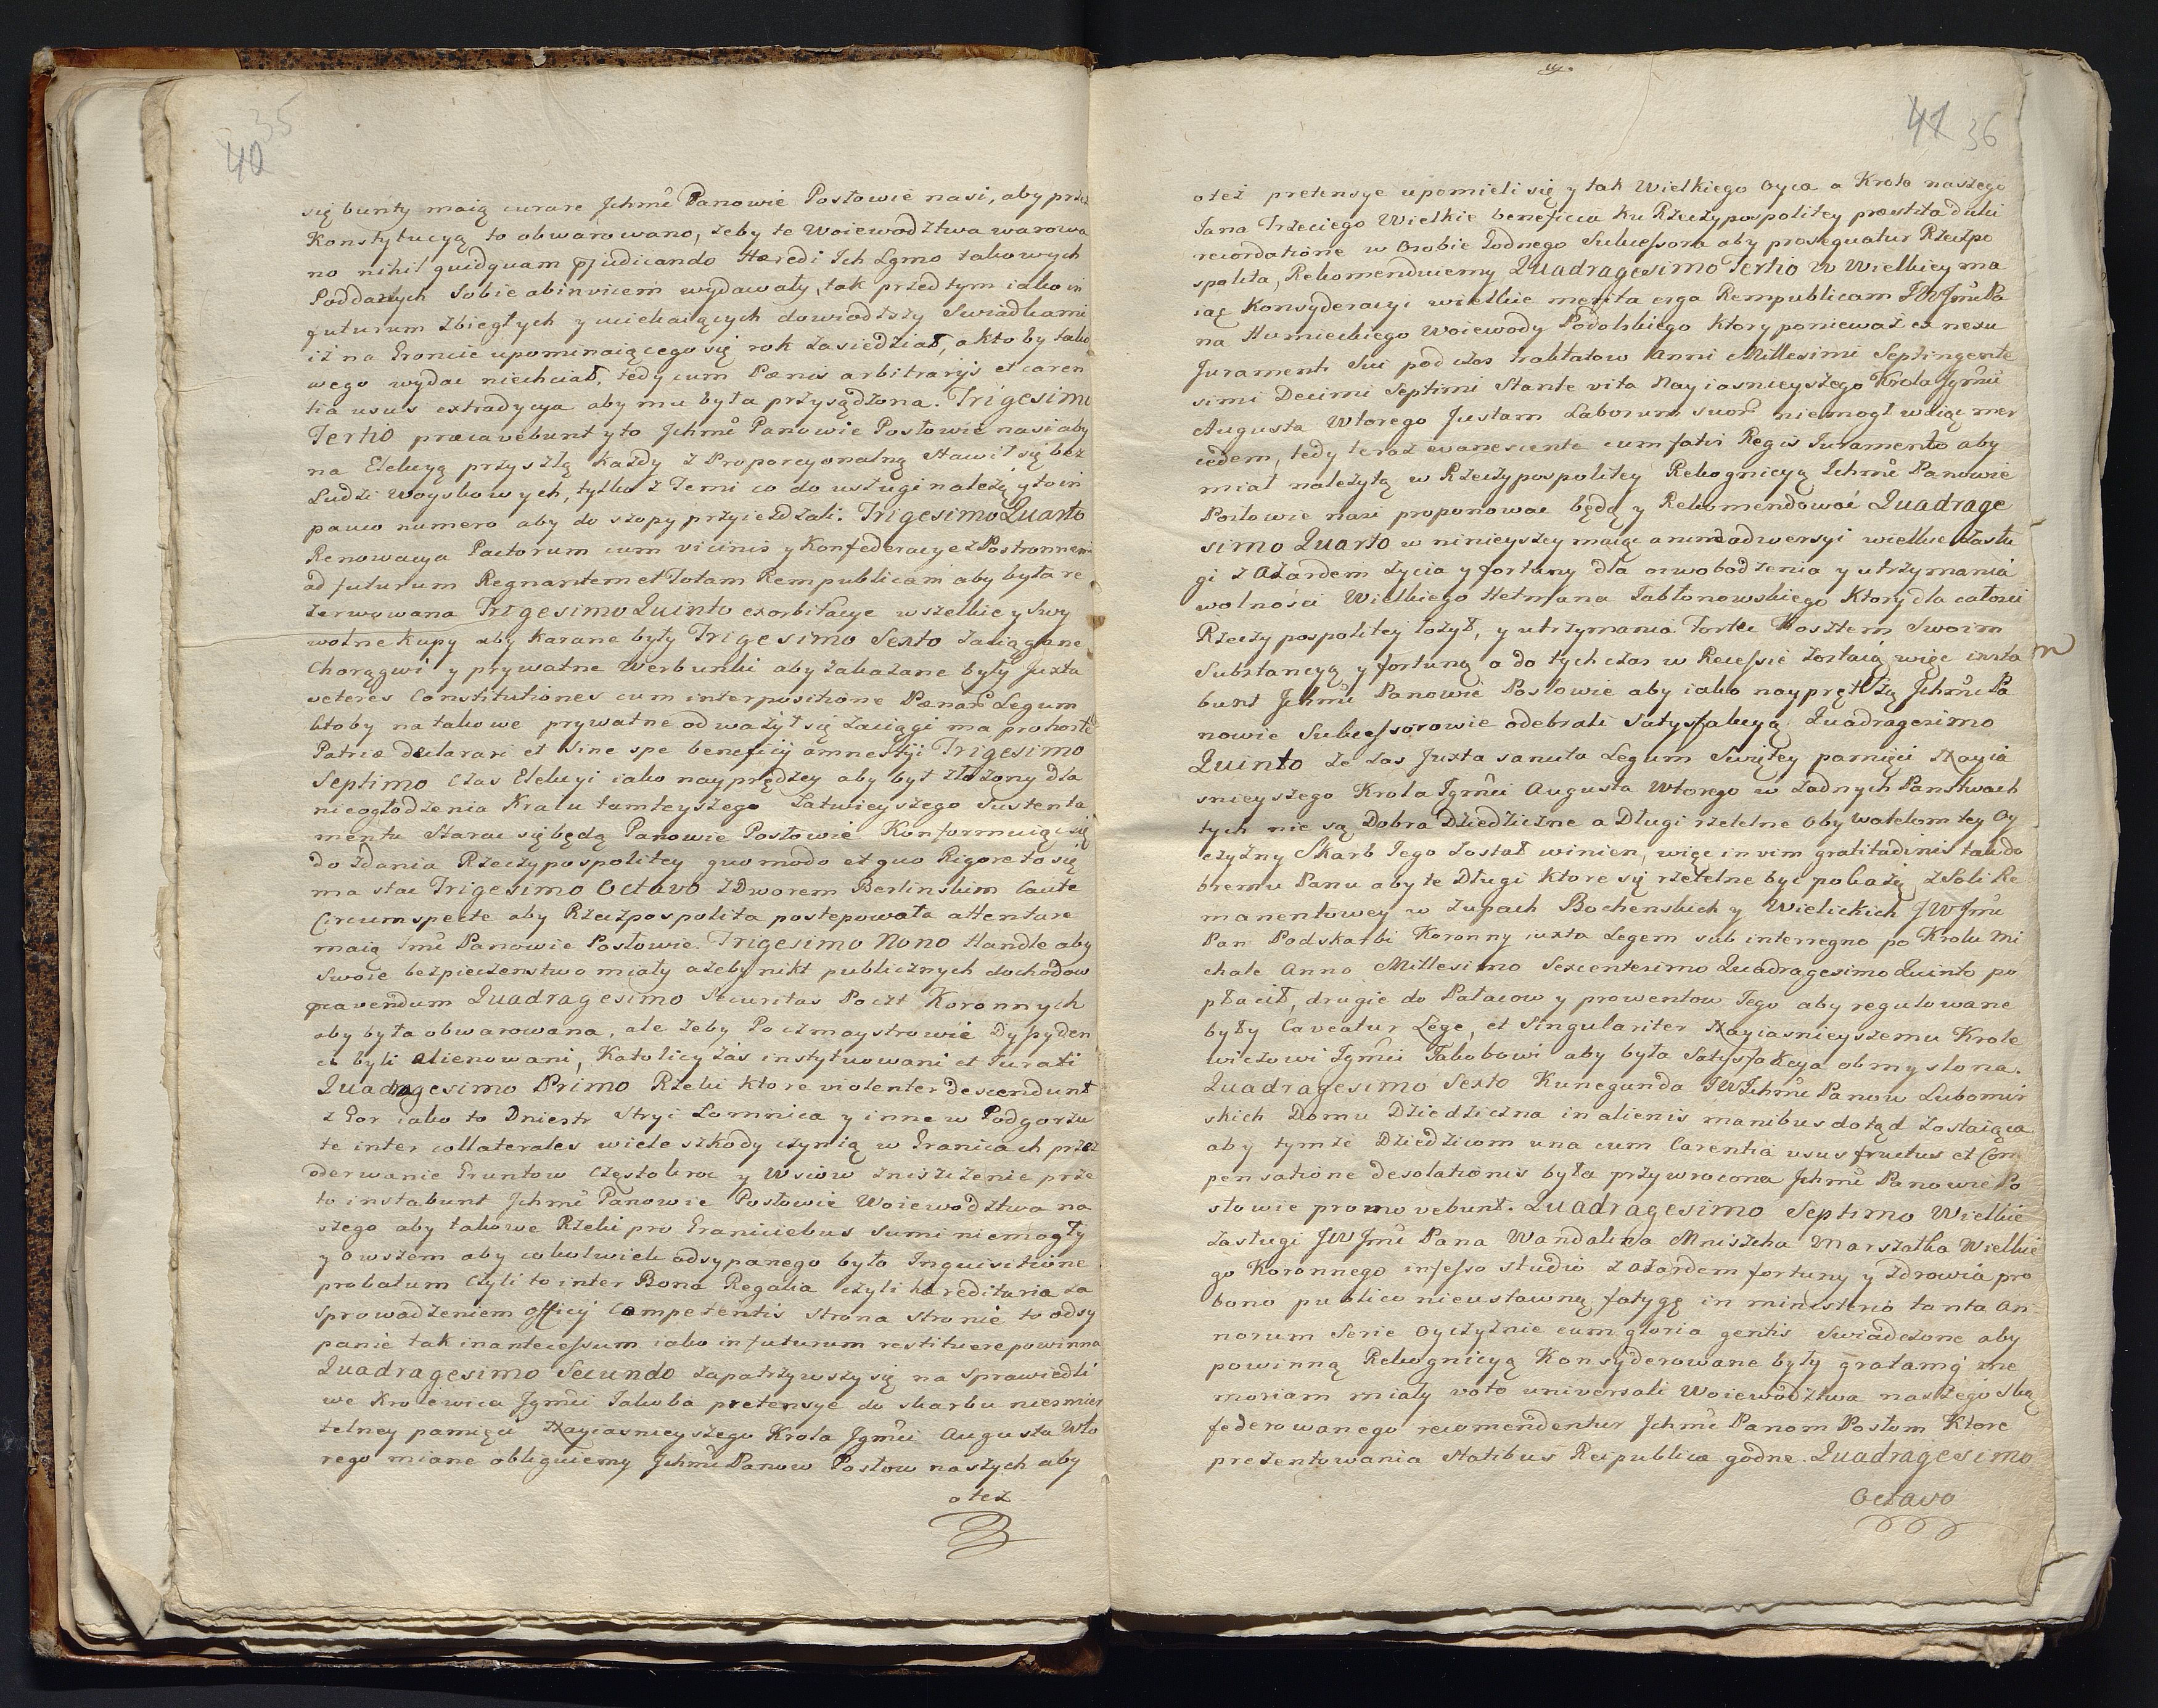 40 35
się bunty maią curare Jchmć Panowie Posłowie nasi, aby przez
Konstytucyą to obwarowano, żeby te Woiewodztwa warowa
no nihil quidquam pjudicando Hæredi Ich Lgmo takowych
Poddanych Sobie abinvicem wydawały, tak przed tym iako in
futurum zbiegłych y uciekaiących dowiodszy Swiadkami
iż na Groncie upominaiącego się rok zasiedział, a kto by tako
wego wydac niechciał, tedy cum Pænis arbitrarijs et caren
tia usus extradycya aby mu była przysądzona. Trigesimo
Tertio præcavebunt y to Jchmć Panowie Posłowie nasi aby
na Elekcyą przyszłą Każdy z Proporcyonalną Stawił się bez
Ludzi Woyskowych, tylko z Temi co do usługi należą y to in
pauco numero aby do szopy przyieżdżali. Trigesimo Quarto
Renowacya Pactorum cum vicinis y Konfederacye z Postronnemi
ad futurum Regnantem et Totam Rempublicam aby była re
zerwowana Trigesimo Quinto exorbitacye wszelkie y Swy
wolne Kupy aby Karane były Trigesimo Sexto zaciągane
Chorągwi y prywatne Werbunki aby zakazane były Juxta
veteres Constitutiones cum interpositione Pænar Legum
ktoby na takowe prywatne odważył się zaciągi ma pro hoste
Patriæ declarari et Sine spe beneficij amnestyi Trigesimo
Septimo Czas Elekcyi iako nayprędzey aby był złożony dla
nieogłodzenia Kraiu tamteyszego Łatwieyszego Sustenta
mentu Starac się będą Panowie Posłowie Konformuiąc się
do zdania Rzeczypospolitey quo modo et quo Rigore to się
ma stac Trigesimo Octavo z Dworem Berlinskim Caute
Circumspecte aby Rzeczpospolita postepowała attentare
maią Jmć Panowie Posłowie. Trigesimo Nono Handle aby
Swoie bezpieczenstwo miały ażeby nikt publicznych dochodow
præcavendum Quadragesimo Securitas Poczt Koronnych
aby była obwarowana, ale żeby Poczmaystrowie Dyssyden
ci byli alienowani, Katolicy zás instytuowani et Jurati
Quadragesimo Primo Rzeki Ktore violenter descendunt
z Gor iako to Dniestr Stryi Lomnica y inne w Podgorzu
te inter collaterales wiele szkody czynią w Granicach przez
oderwanie Gruntow Częstokroc y Wsiow zniszczenie prze
to instabunt Jchmć Panowie Posłowie Woiewodztwa na
szego aby takowe Rzeki pro Graniciebus Sumi niemogły
y owszem aby cokolwiek odsypanego było Inquisitione
probatum czyli to inter Bona Regalia czyli hæreditaria za
sprowadzeniem officij Competentis Strona Stronie to odsy
panie tak in antecessum iako in futurum restituere powinna
Quadragesimo Secundo zapatrzywszy się na Sprawiedli
we Krolewica Jgmći Jakuba pretensye do skarbu niesmier
telney pamięci Nayiasnieyszego Krola Jgmći Augusta Wto
rego miane obliguiemy Jchmć Panow Posłow naszych aby
o też
41 36
o też pretensye upomieli się y tak Wielkiego Oyca a Krola naszego
Jana Trzeciego Wielkie beneficia ku Rzeczypospolitey præstita dulci
recordatione w Osobie Godnego Sukcessora aby prosequatur Rzeczpo
spolita, Rekomenduiemy Quadragesimo Tertio w Wielkiey ma
iąc Konsyderacyi wielkie merita erga Rempublicam JWJmć Pa
na Humieckiego Woiewody Podolskiego Ktory ponieważ ex nexu
Juramenti Sui podczas traktatow Anni Millesimi Septingente
simi Decimi Septimi Stante vita Nayiasnieyszego Krola Jgmći
Augusta Wtorego Justam Laborum suor niemogł wziąc mer
cedem, tedy teraz evanescente cum fatis Regis Juramento aby
miał należytą w Rzeczypospolitey Rekognicyą Jchmć Panowie
Posłowie nasi proponowac będą y Rekomendować Quadrage
simo Quarto w ninieyszey maiąc animadwersyi wielkie zasłu
gi z Azardem życia y fortuny dla oswobodzenia y utrzymania
wolności Wielkiego Hetmana Jabłonowskiego Ktory dla całości
Rzeczypospolitey łożył, y utrzymania Fortec Kosztem Swoim
Substancyą y fortuną a do tych czas w Recessie zostaią więc insta
bunt Jchmć Panowie Posłowie aby iako nayprętszą Jchmć Pa
nowie Sukcessorowie odebrali Satysfakcyą Quadragesimo
Quinto że zas Juxta sancita Legum Swiętey pamięci Nayia
snieyszego Krola Jgmći Augusta Wtorego w żadnych Panstwach
tych nie są Dobra Dziedziczne a Długi rzetelne Obywatelom tey Oy
czyzny Skarb Jego został winien, więc in vim gratitudinis tak do
bremu Panu aby te Długi Ktore się rzetelne byc pokażą z Soli Re
manentowey w żupach Bochenskich y Wielickich JWJmć
Pan Podskarbi Koronny iuxta Legem sub interregno po Krolu Mi
chale Anno Millesimo Sexcentesimo Quadragesimo Quinto po
płacił, drugie do Pałacow y prowentow Jego aby regulowane
były Caveatur Lege, et Singulariter Nayiasnieyszemu Krole
wiczowi Jgmći Jakobowi aby była Satysfakcya obmyslona.
Quadragesimo Sexto Kunegunda JWJchmć Panow Lubomir
skich Domu Dziedziczna in alienis manibus dotąd zostaiąca
aby tymże Dziedzicom una cum Carentia usus fructus et Com
pensatione desolationis była przywrocona Jchmć Panowie Po
słowie promovebunt. Quadragesimo Septimo Wielkie
zasługi JWJmć Pana Wandalina Mniszcha Marszałka Wielkie
go Koronnego infesso studio z azardem fortuny y zdrowia pro
bono publico nieustawną fatygę in ministerio tanta an
norum Serie Oyczyznie cum gloria gentis Swiadczone aby
powinną Rekognicyą Konsyderowane były gratamq̓ me
moriam miały voto universali Woiewodztwa naszego Ską
federowanego recomendentur Jchmć Panom Posłom Ktore
prezentowania Statibus Reipublicæ godne. Quadragesimo
Octavo